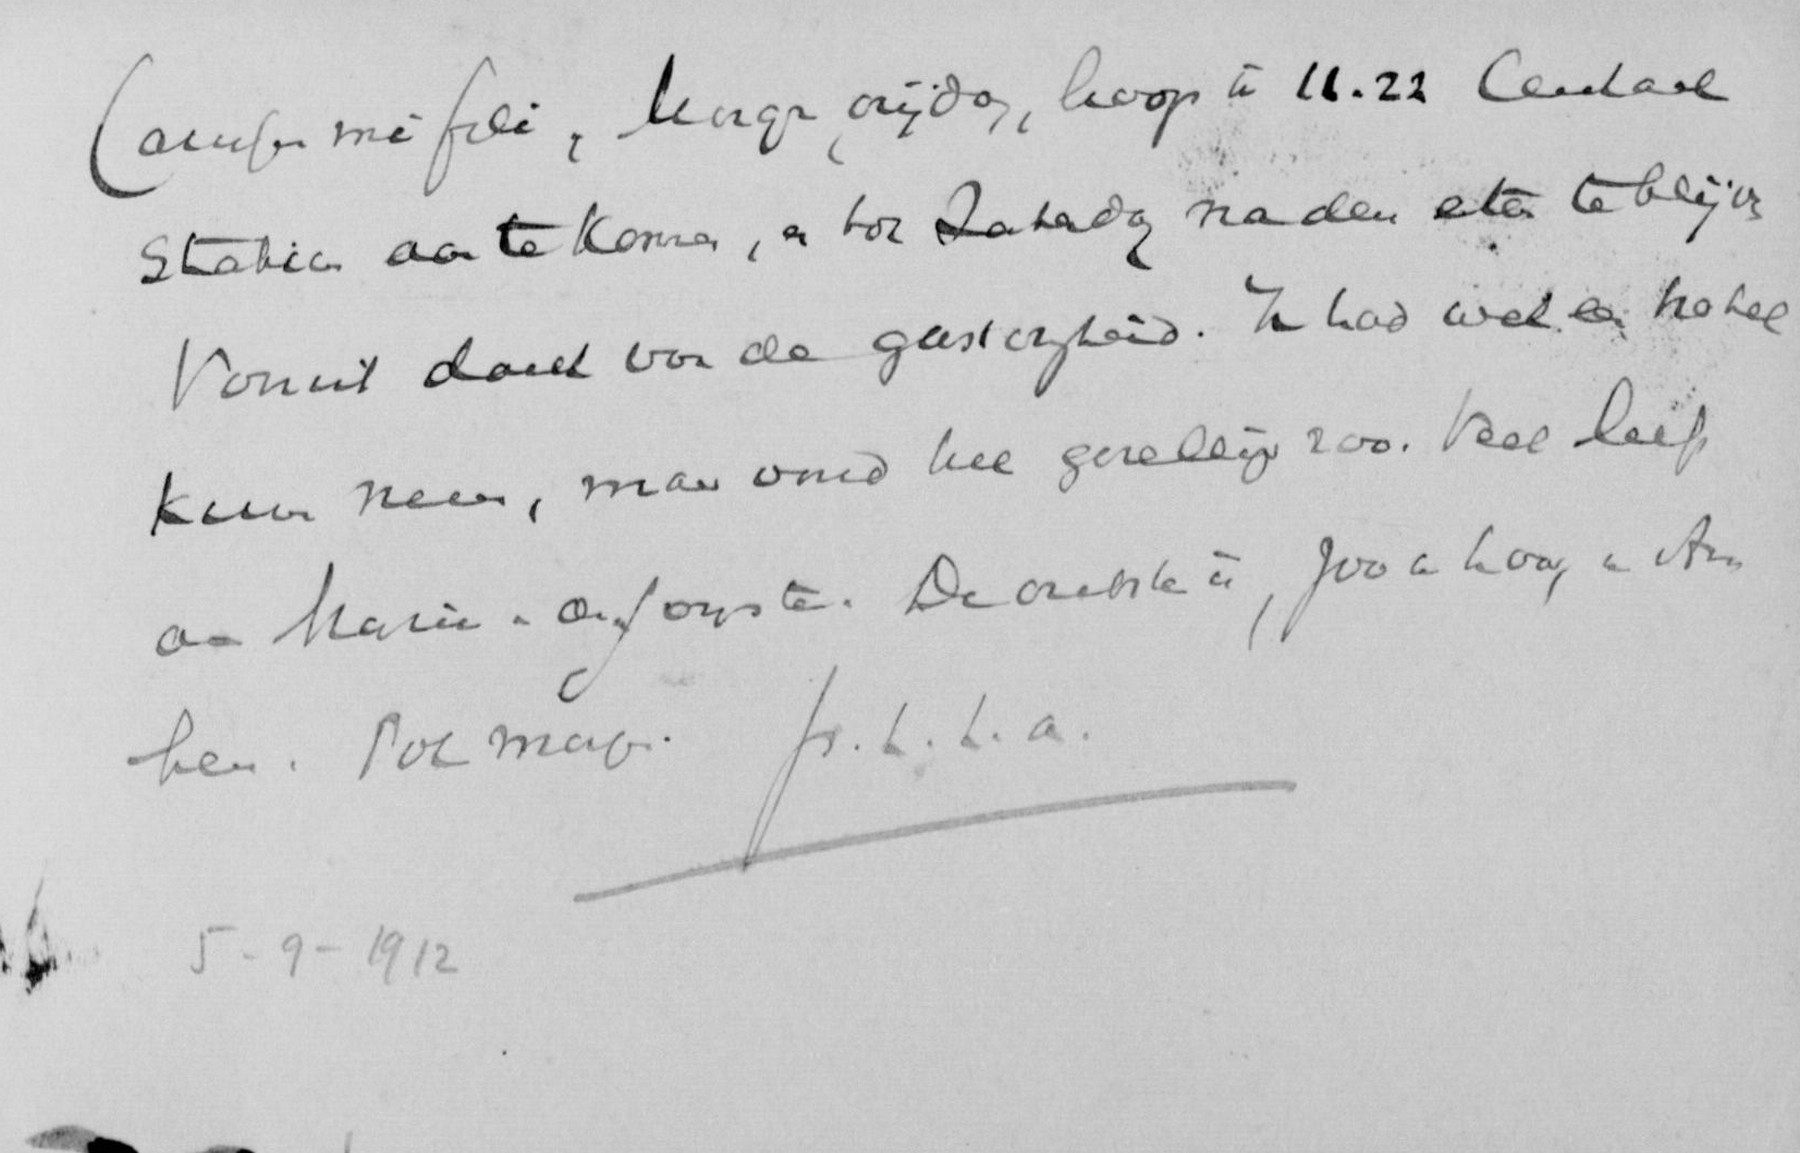 Carissime fili, Morgen, vrijdag, hoop ik 11.22 Centraal
Station aan te komen, en tot Zaterdag na den eten te blijven
Vooruit dank voor de gastvrijheid. Ik had wel een hotel
kunnen nemen, maar vond het gezellig zoo. Veel liefs
aan Marie en
hen. Tot morgen. fr. L. L. a.
5-9-1912